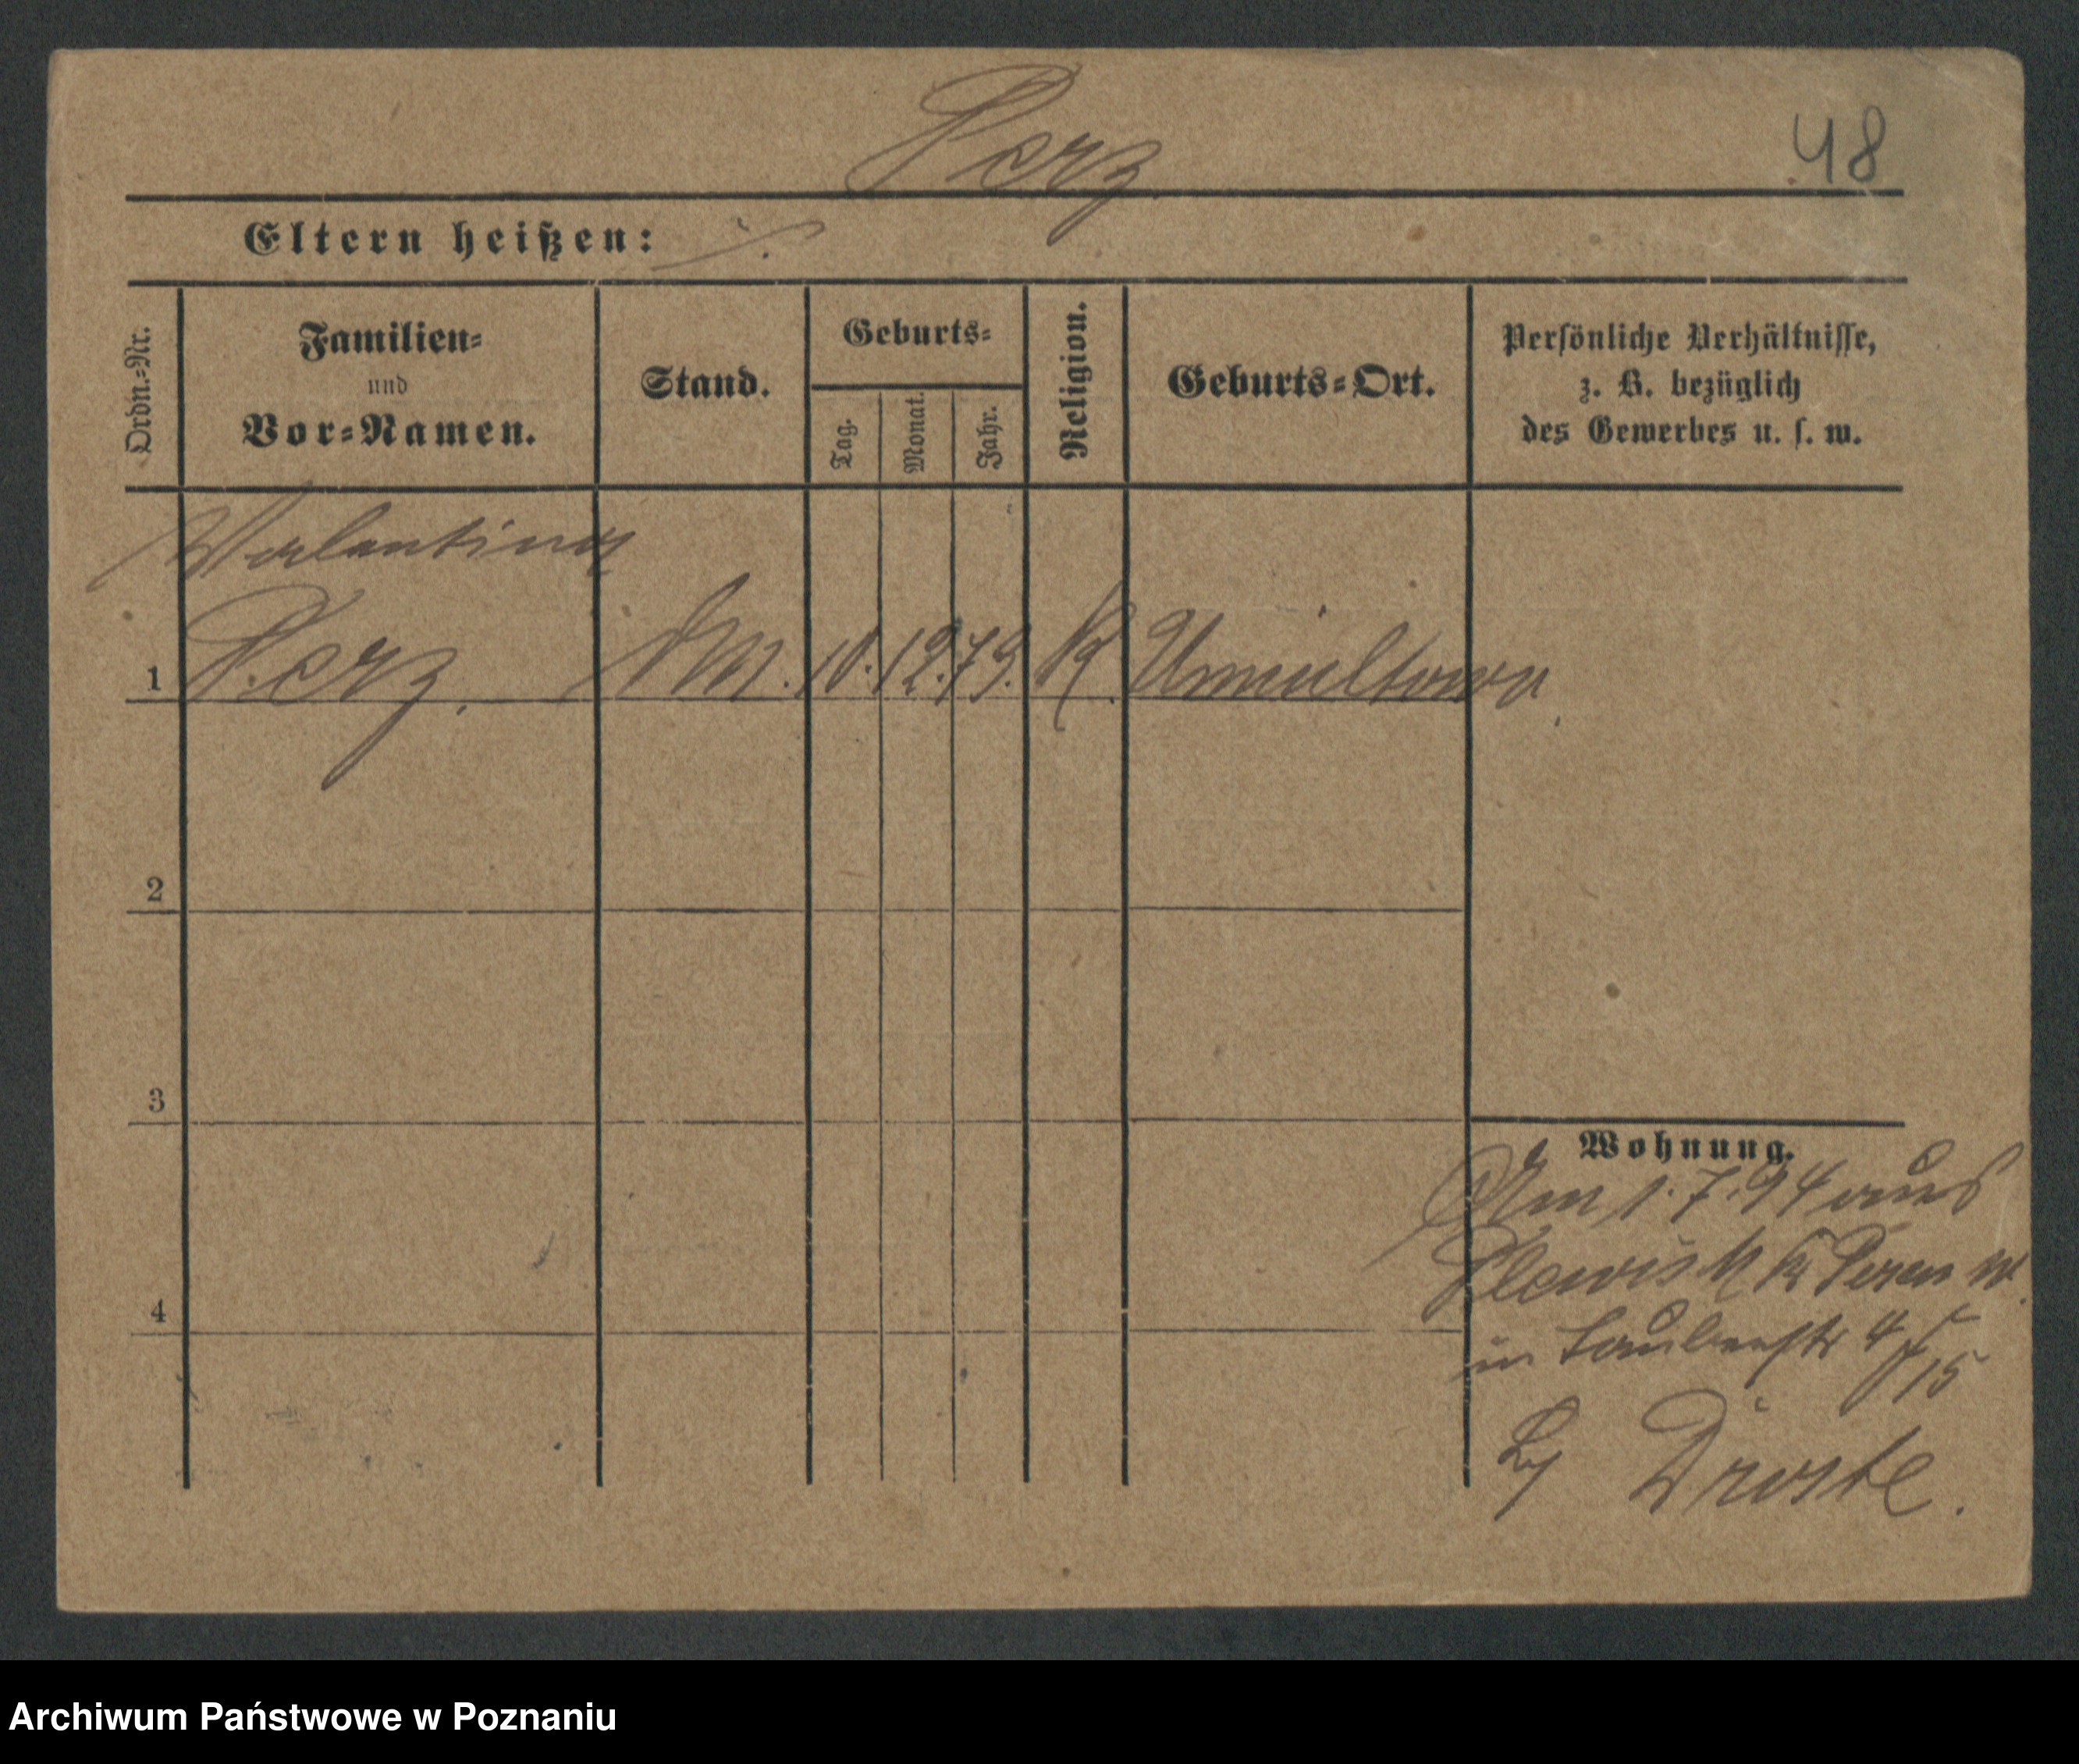 Perz
48
Eltern heißen: ./.
Ordn.-Nr.
Familien-
und
Vor-Namen.
Stand.
Geburts-
Tag.
Monat.
Jahr.
Religion.
Geburts-Ort.
Persönliche Verhältnisse,
z. B. bezüglich
des Gewerbes u. s. w.
Valentina
1 Perz. 10. 12. 79. K. Umultowo
2
3
4
Wohnung.
Am 1.7.94 aus
Plewisk Kr Posen W.
in Taubenstr 4
15
Droste.
Archiwum Państwowe w Poznaniu